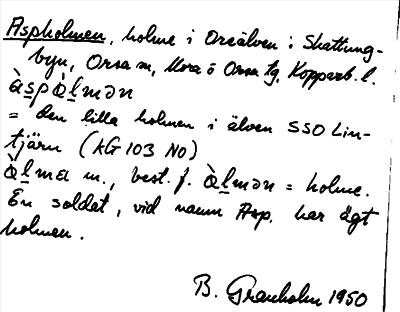 Aspholmen, holme i Oreälven i Skattung-
byn, Orsa sn, Mora o Orsa tg, Kopparb. l.
àspòlmən
= den lilla holmen i älven SSO Lin-
tjärn (KG 103 NO)
òlma m., best. f. òlmən = holme.
En soldat, vid namn Asp, har ägt
holmen.
B. Granholm 1950